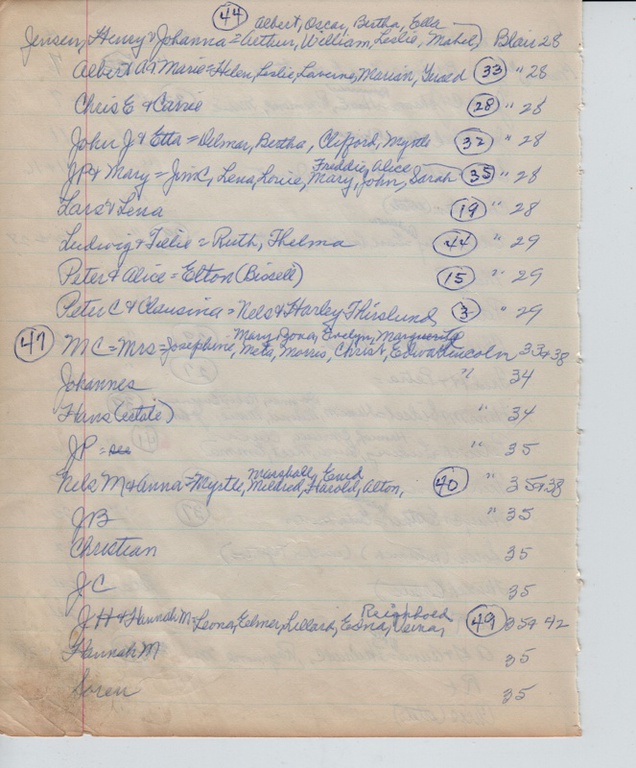 (44) Albert, Oscar, Bertha, Ella
Jensen, Henry & Johanna = Arthur, William, Leslie, Mabel) Blair 28
Albert A & Marie = Helen, Leslie, Laverne, Marian, (33) " 28
Chris E & Carrie (28) " 28
John J & Etta = Delmar, Bertha, Clifford, Myrtle (32) " 28
Freddie, Alice
JP & Mary = Jim C, Lena, Louie, Mary, John, Sarah (35) " 28
Lars & Lena (19) " 28
Ludwig & Tillie = Ruth, Thelma (44) " 29
Peter & Alice = Elton (Bissell) (15) " 29
Peter C & Clausina = Nels & Harley Thirslund (3) " 29
Mary Dora, Evelyn, Marguerite
(47) MC = Mrs = Josephine, Meta, Morris, Christ, Edwa Lincoln 33 & 38
Johannes " 34
Hans (estate) " 34
JP = " 35
Marshall, Enid
Nels M & Anna = Myrtle, Mildred, Harold, Alton, (40) " 35 & 38
JB " 35
Christian 35
JC 35
Reighbold
JH & Hannah M - Leona, Elmer, Lillard, Edna, Verna, (49) 35 & 42
Hannah M 35
Soren 35